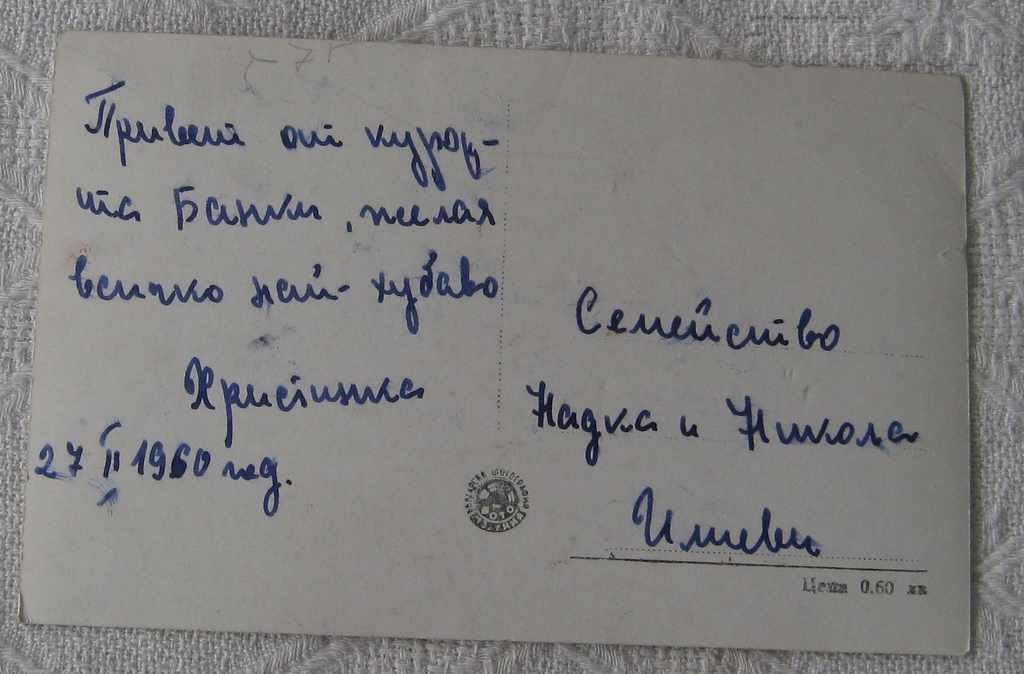 Привет от курор-
та Банки, желая
всичко най-хубаво
Христинка
27 II 1960 год.
Семейство
Надка и Никола
Илиеви
ФОТО
Цена 0.60 лв